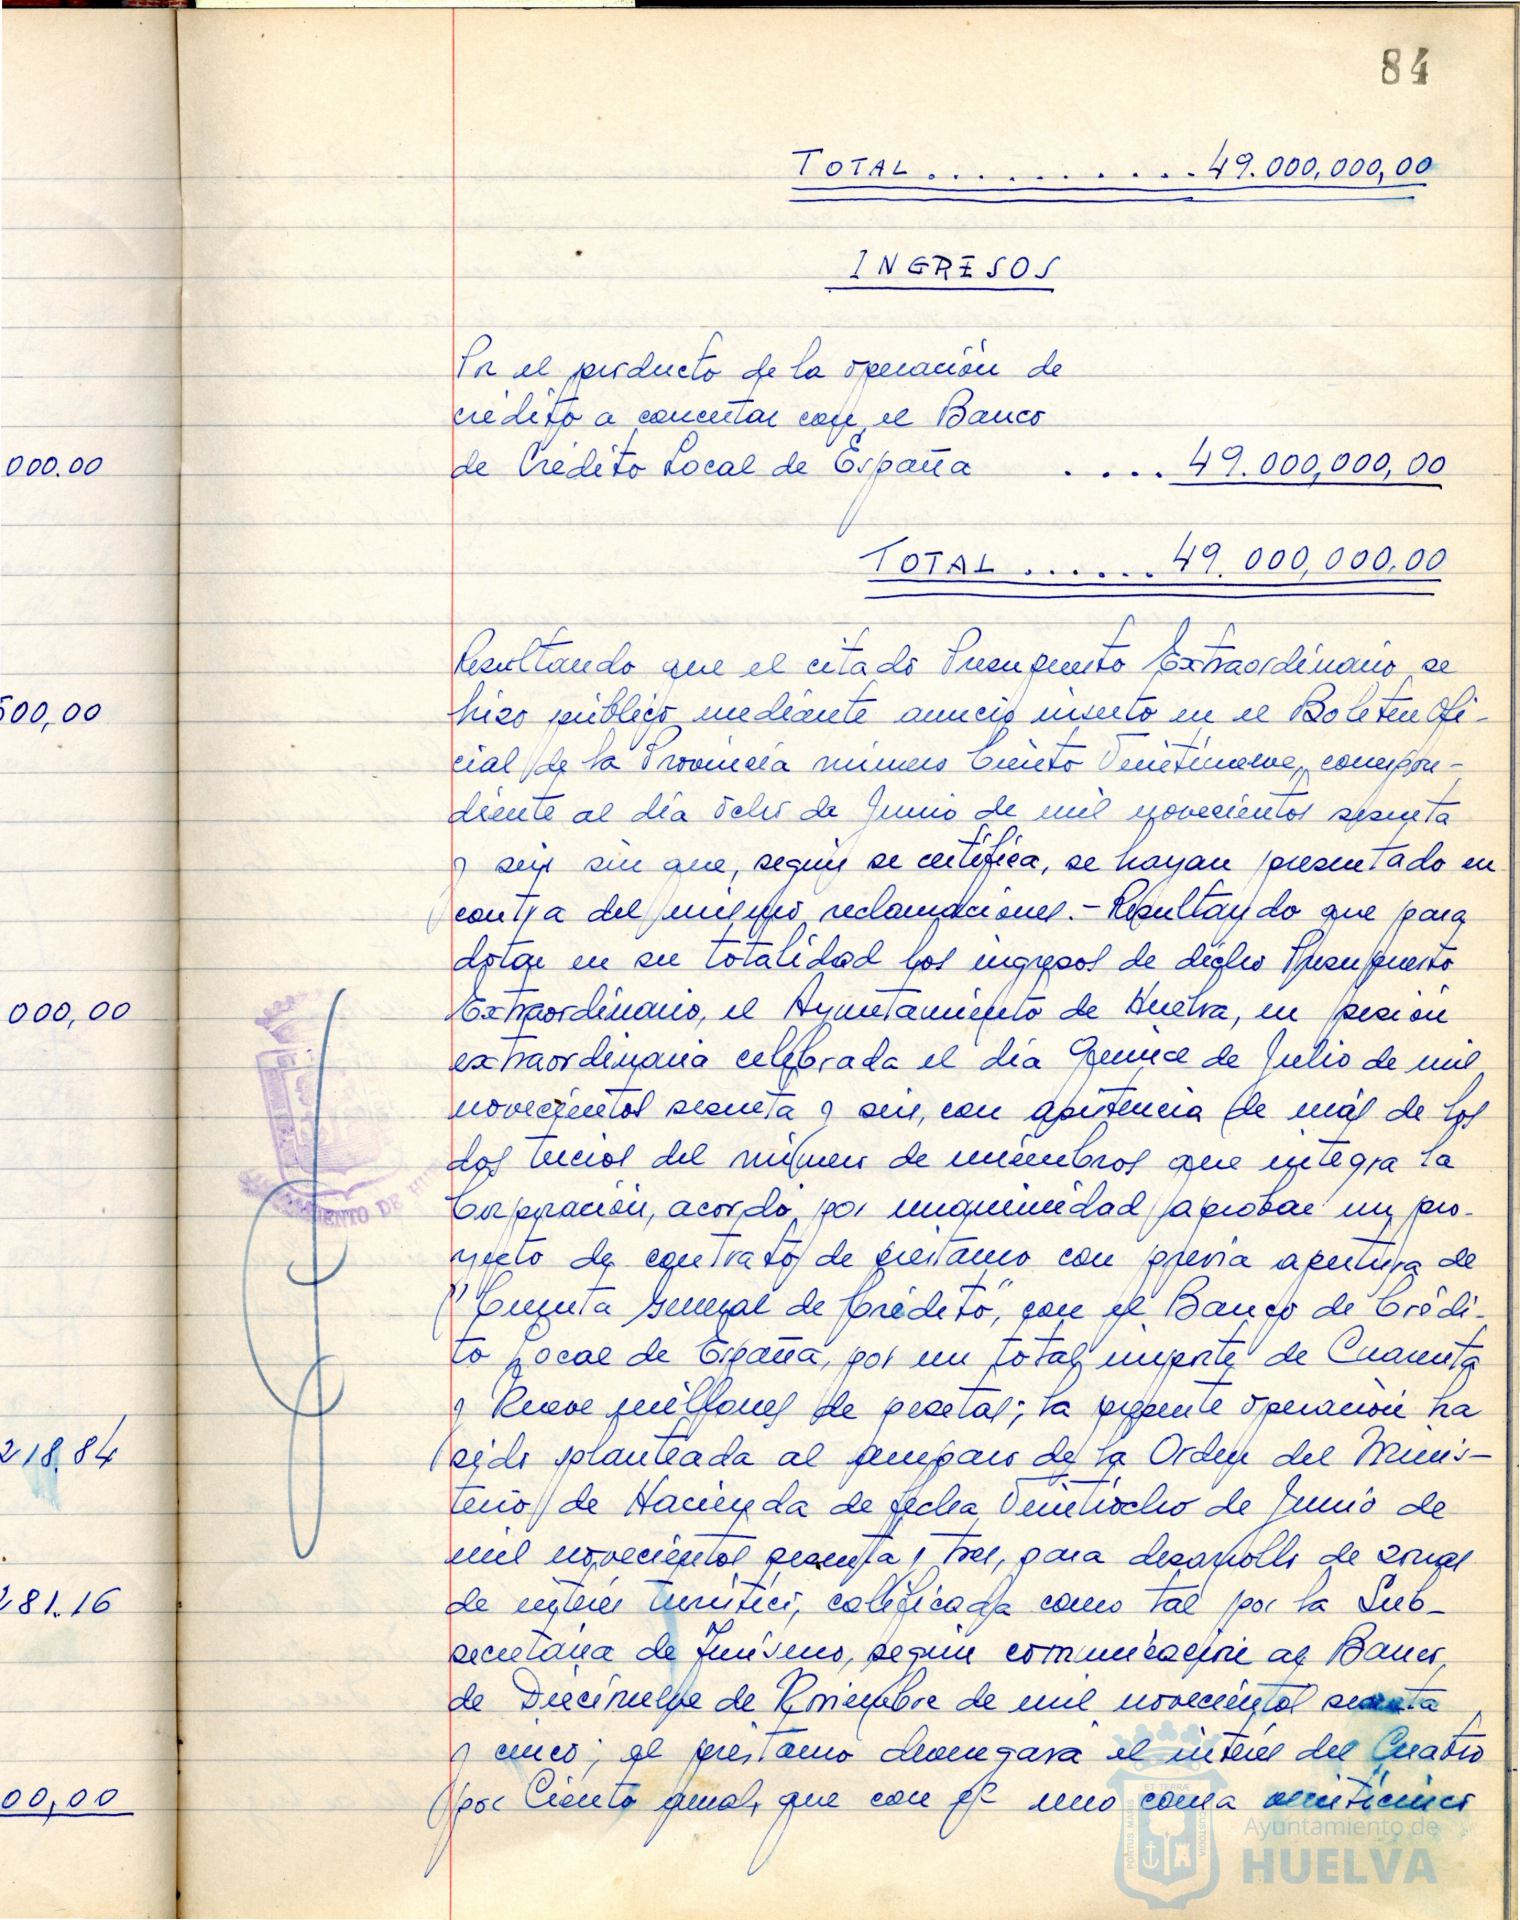 84
TOTAL . . . . . . . . . . 49.000,000,00
INGRESOS
Por el producto de la operación de
crédito a concertar con el Banco
000.00
de Crédito Local de España . . . . 49.000,000,00
TOTAL . . . . . . 49.000,000.00
Resultando que el citado Presupuesto Extraordinario se
500,00
hizo público mediante anuncio inserto en el Boletín Ofi-
cial de la Provincia número Ciento Veintinueve, correspon-
diente al día ocho de Junio de mil novecientos sesenta
y seis sin que, según se certifica, se hayan presentado en
contra del mismo reclamaciones.- Resultando que para
dotar en su totalidad los ingresos de dicho Presupuesto
000,00
Extraordinario, el Ayuntamiento de Huelva, en sesión
extraordinaria celebrada el día Quince de Julio de mil
novecientos sesenta y seis, con asistencia de más de los
dos tercios del número de miembros que integra la
AYUNTAMIENTO DE HUELVA
Corporación, acordó por unanimidad aprobar un pro-
yecto de contrato de préstamo con previa apertura de
"Cuenta General de Crédito", con el Banco de Crédi-
to Local de España, por un total importe de Cuarenta
y Nueve millones de pesetas; la presente operación ha
218.84
sido planteada al amparo de la Orden del Minis-
terio de Hacienda de fecha Veintiocho de Junio de
mil novecientos sesenta y tres, para desarrollo de zonas
281.16
de interés turístico, calificada como tal por la Sub-
secretaría de Turismo, según comunicación al Banco,
de Diecinueve de Noviembre de mil novecientos sesenta
y cinco; el préstamo devengará el interés del Cuatro
00,00
por Ciento anual, que con el uno coma veinticinco
ET TERRÆ
PORTUS MARIS
CUSTODIA
Ayuntamiento de
HUELVA